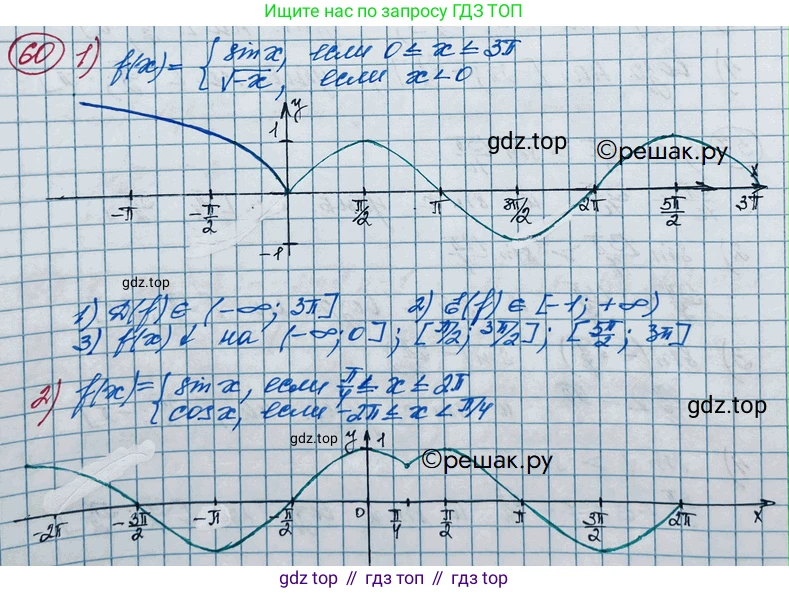 Ищите нас по запросу ГДЗ ТОП
60 1) f(x) = { sin x, если 0 ≤ x ≤ 3π
{ √-x, если x < 0
y
1
gdz.top
©решак.ру
x
-π -π/2 π/2 π 3π/2 2π 5π/2 3π
-1
gdz.top
1) D(f) ∈ (-∞; 3π] 2) E(f) ∈ [-1; +∞)
3) f(x) ↓ на (-∞; 0]; [π/2; 3π/2]; [5π/2; 3π]
2) f(x) = { sin x, если π/4 ≤ x ≤ 2π
{ cos x, если -2π ≤ x < π/4
gdz.top
gdz.top
y 1
©решак.ру
-2π -3π/2 -π -π/2 0 π/4 π/2 π 3π/2 2π x
gdz.top // гдз топ // gdz.top